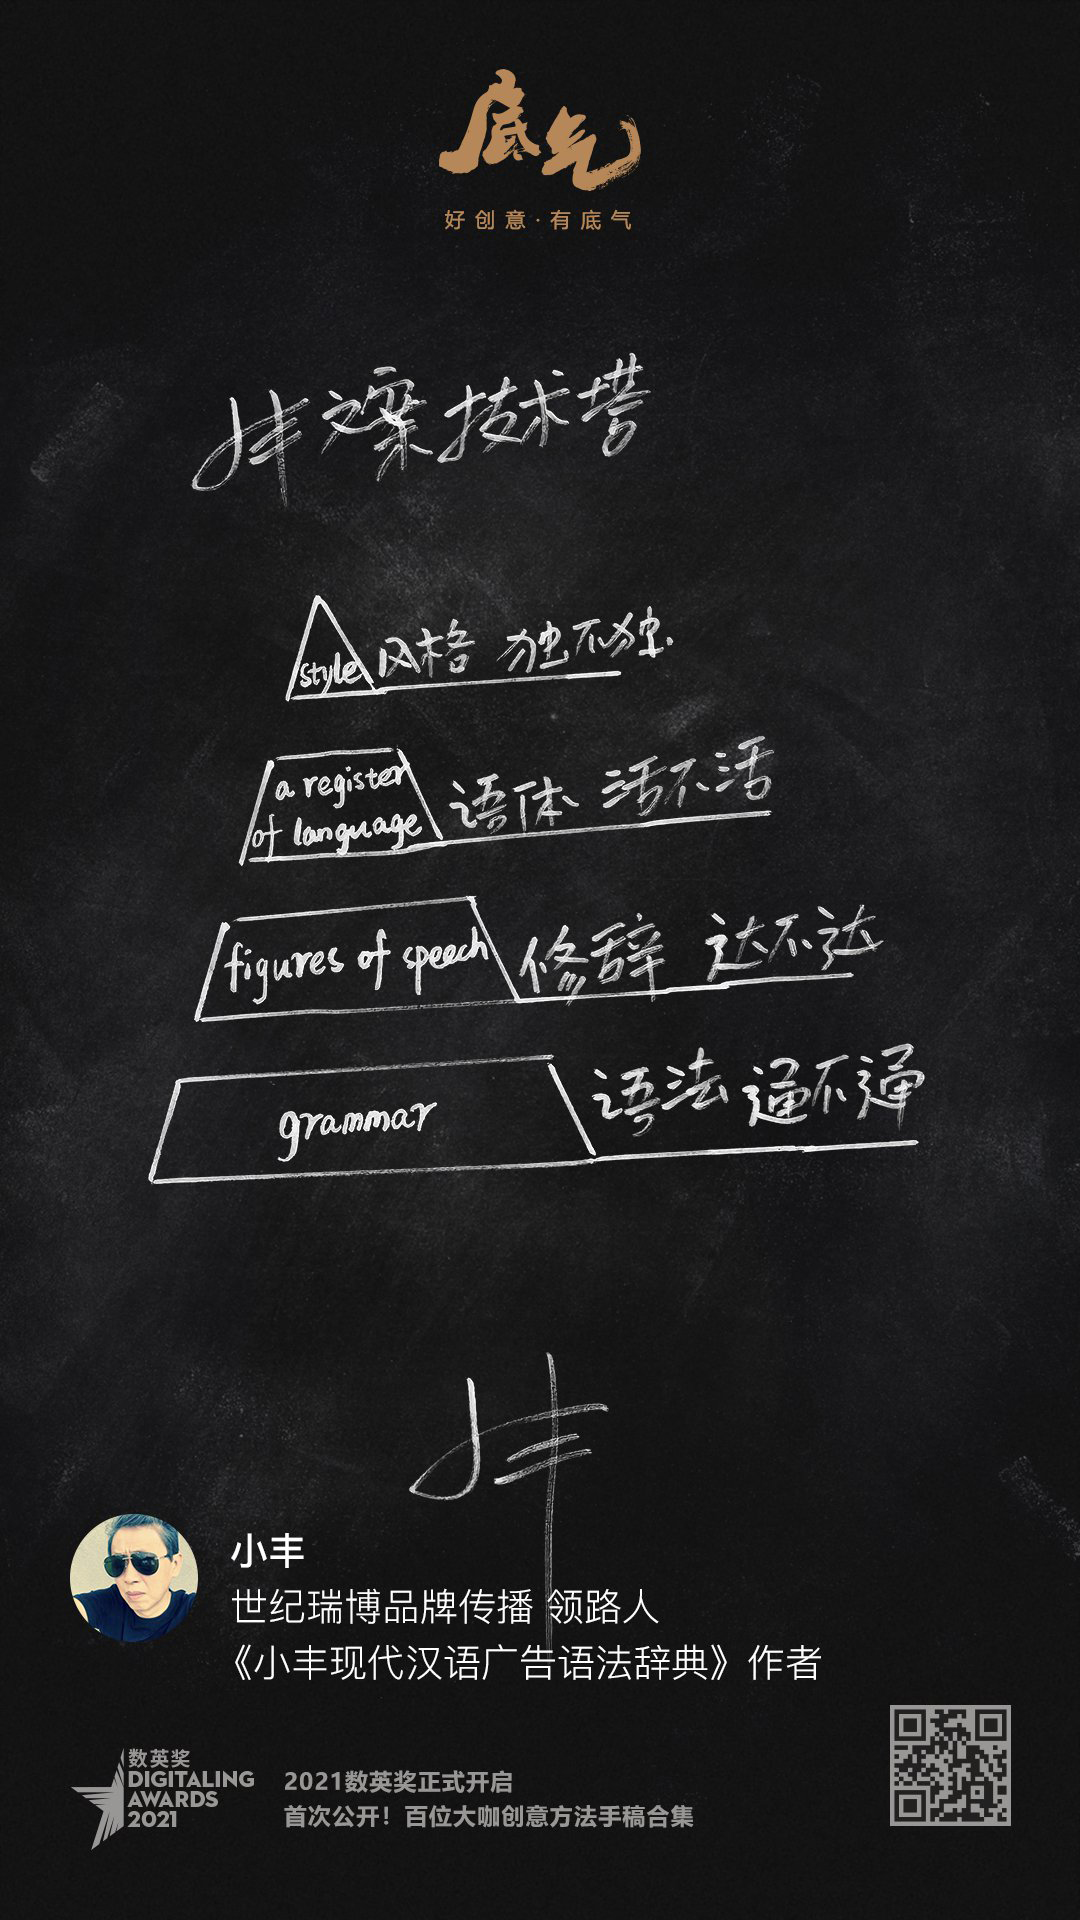 底气
好创意·有底气
小丰文案技术塔
style 风格 独不独
a register
of language 语体 活不活
figures of speech 修辞 达不达
grammar 语法 通不通
小丰
小丰
世纪瑞博品牌传播 领路人
《小丰现代汉语广告语法辞典》作者
数英奖
DIGITALING
AWARDS
2021
2021数英奖正式开启
首次公开!百位大咖创意方法手稿合集